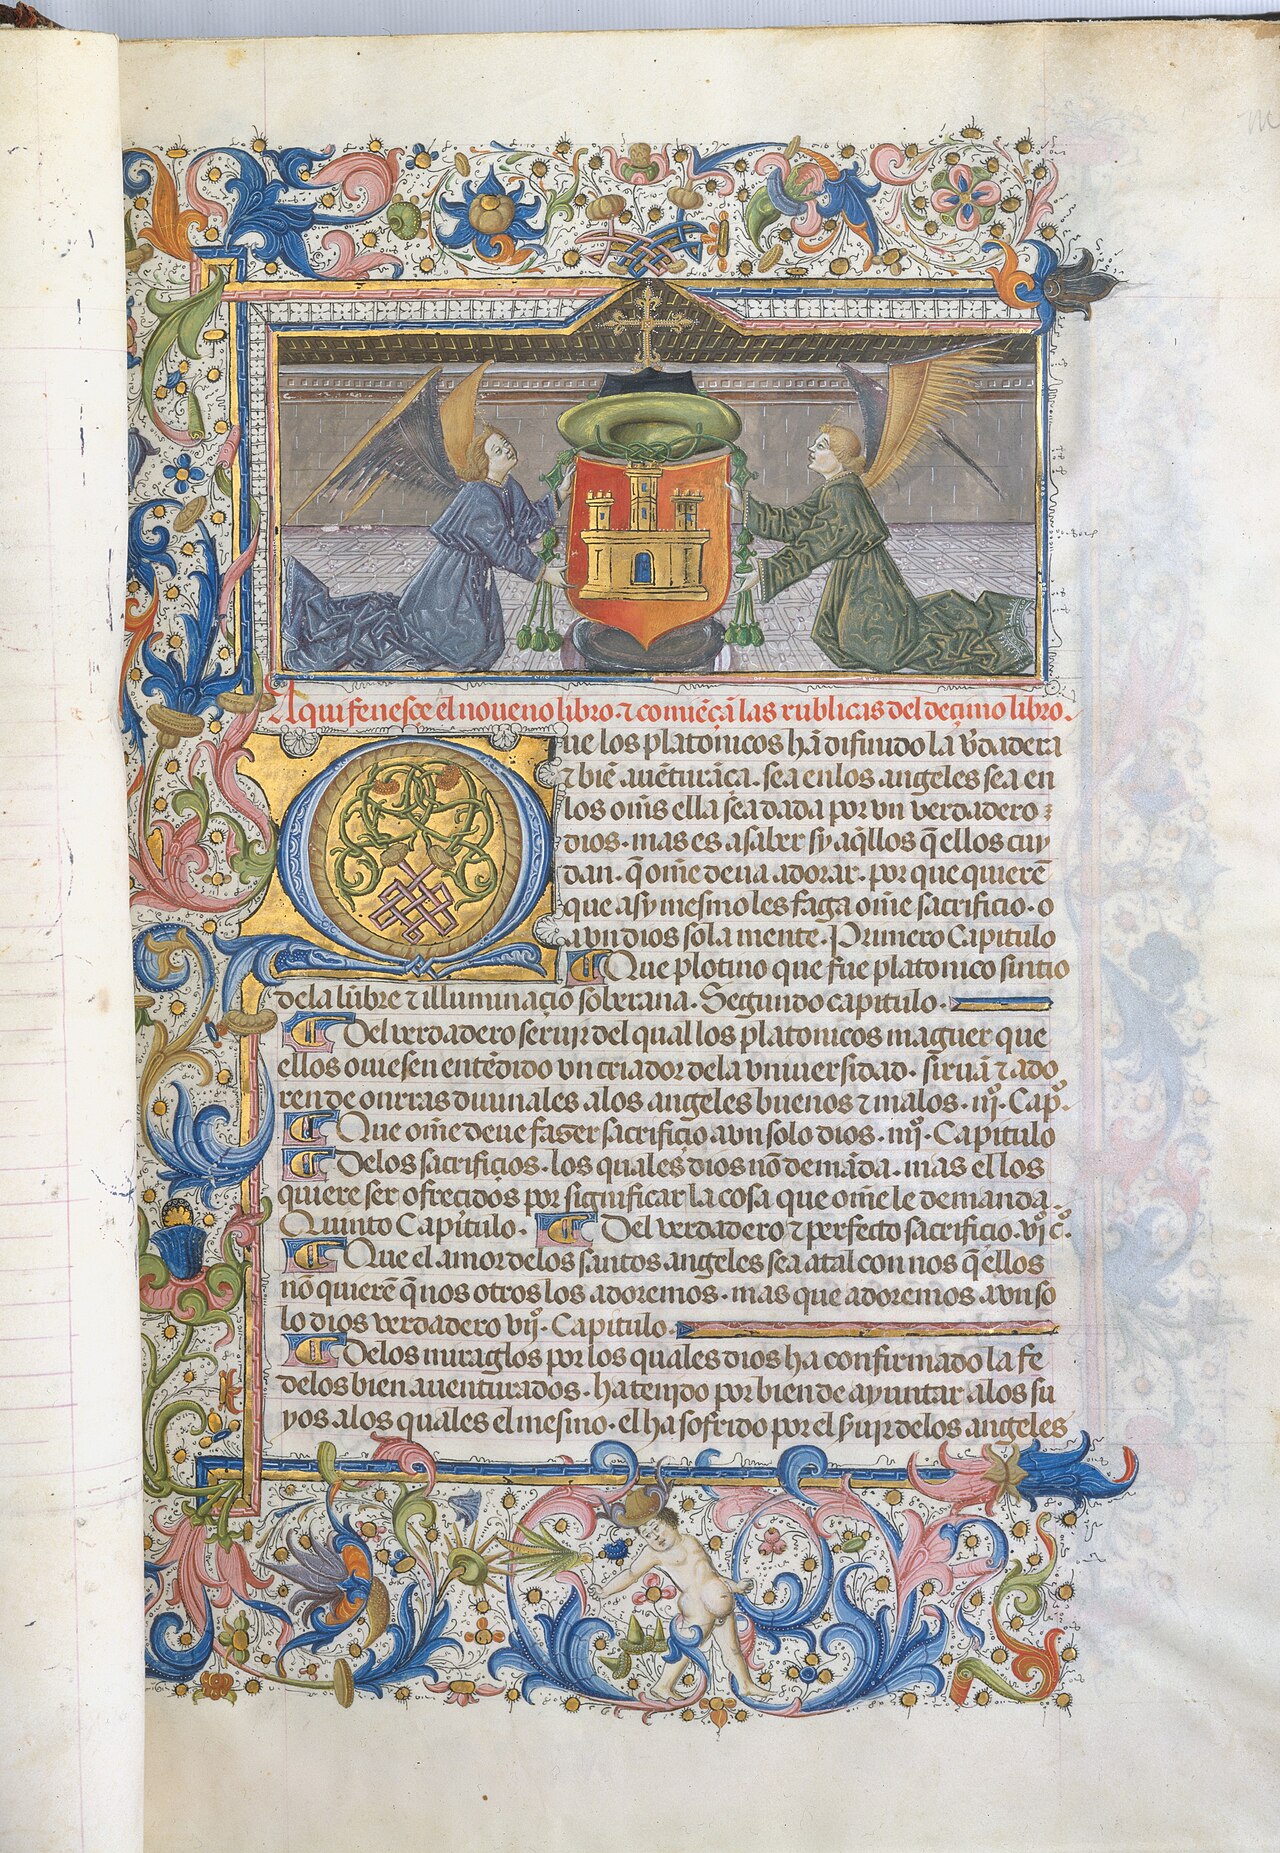 Aqui fenesçe el noueno libro ⁊ comiẽçã las rublicas del deçimo libro.
Que los platonicos hã difinido la v̉dadera
⁊ biẽ auẽturãça. sea en los angeles sea en
los om̃s ella sea dada por vn verdadero
dios. mas es a saber sy aq̃llos q̃ ellos cuy
dan. q̃ om̃e deua adorar. por que quierẽ
que asy mesmo les faga om̃e sacrificio. o
a vn dios sola mente. Primero Capitulo
Que plotino que fue platonico sintio
dela lũbre ⁊ illuminaçio soberana. Segundo capitulo.
Del verdadero seruir del qual los platonicos maguer que
ellos ouiesen entẽdido vn criador dela vniuersidad. siruã ⁊ ado
ren de onrras diuinales a los angeles buenos ⁊ malos. iijº. Capº.
Que om̃e deue fazer sacrificio a vn solo dios. iiijº. Capitulo
Delos sacrificios. los quales dios nõ demãda. mas el los
quiere ser ofrecidos por significar la cosa que om̃e le demanda.
Quinto Capitulo. Del verdadero ⁊ perfecto sacrificio. vjº cº.
Que el amor delos santos angeles sea atal con nos q̃ ellos
nõ quierẽ q̃ nos otros los adoremos. mas que adoremos a vn so
lo dios verdadero vijº. Capitulo.
Delos miraglos por los quales dios ha confirmado la fe
delos bien auenturados. ha tenido por bien de ayuntar a los su
yos a los quales el mesmo. el ha sofrido por el seruir delos angeles